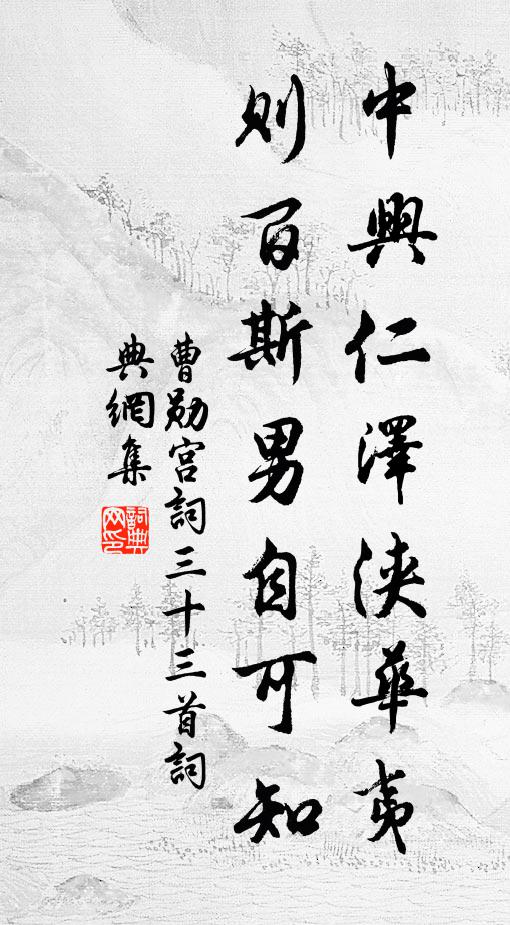 中興仁澤浹華夷
則百斯男自可知
曹勛宮詞三十三首詞
典網集
詞典
网印